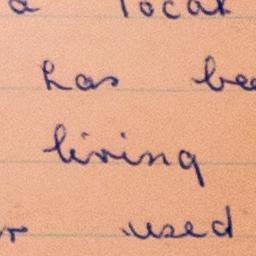 a local
has
living
used